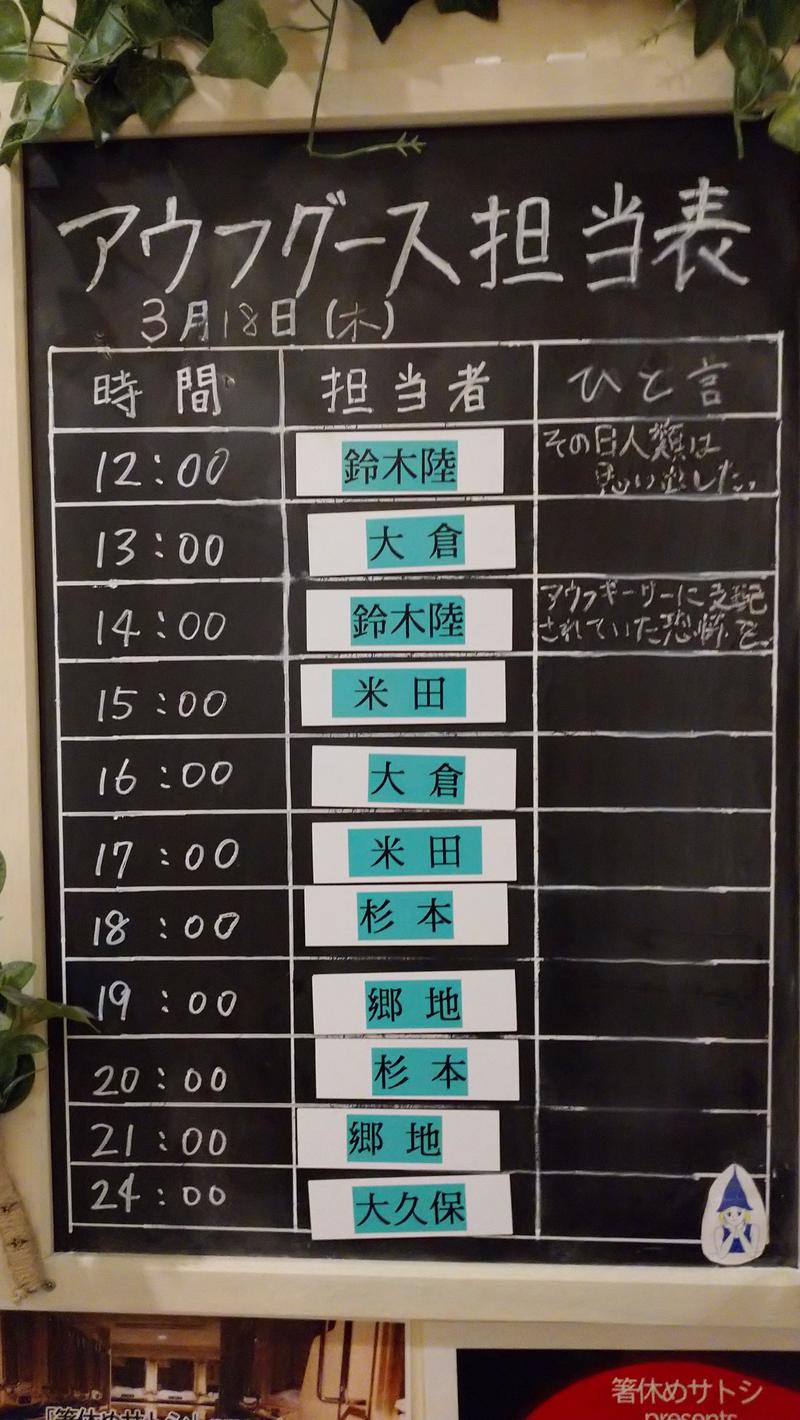 アウフグース担当表
3月18日(木)
時間 担当者 ひと言
12:00 鈴木陸 その日人類は
思い出した。
13:00 大倉
14:00 鈴木陸 アウフギーサーに支配
されていた恐怖を。
15:00 米田
16:00 大倉
17:00 米田
18:00 杉本
19:00 郷地
20:00 杉本
21:00 郷地
24:00 大久保
箸休めサトシ
presents
「箸休めサトシ」